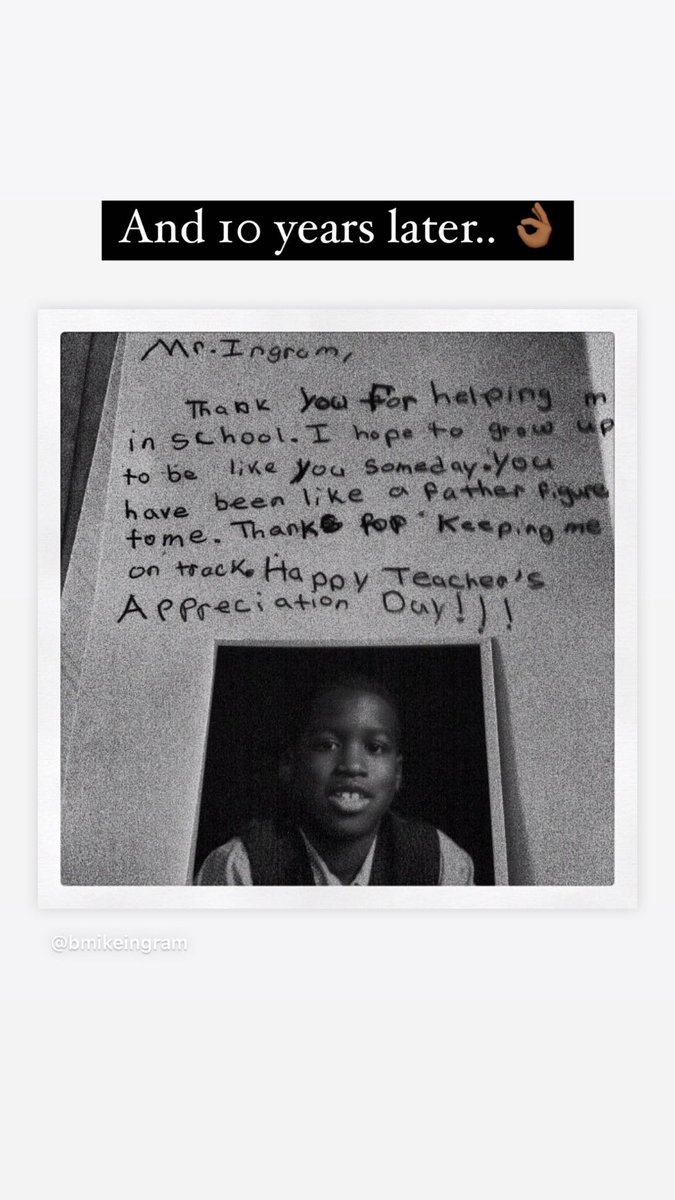 And 10 years later.. 👌🏾
Mr. Ingram,
Thank you for helping m
in school. I hope to grow up
to be like you someday. You
have been like a father figure
to me. Thanks for keeping me
on track. Happy Teacher's
Appreciation Day!!!
@bmikeingram